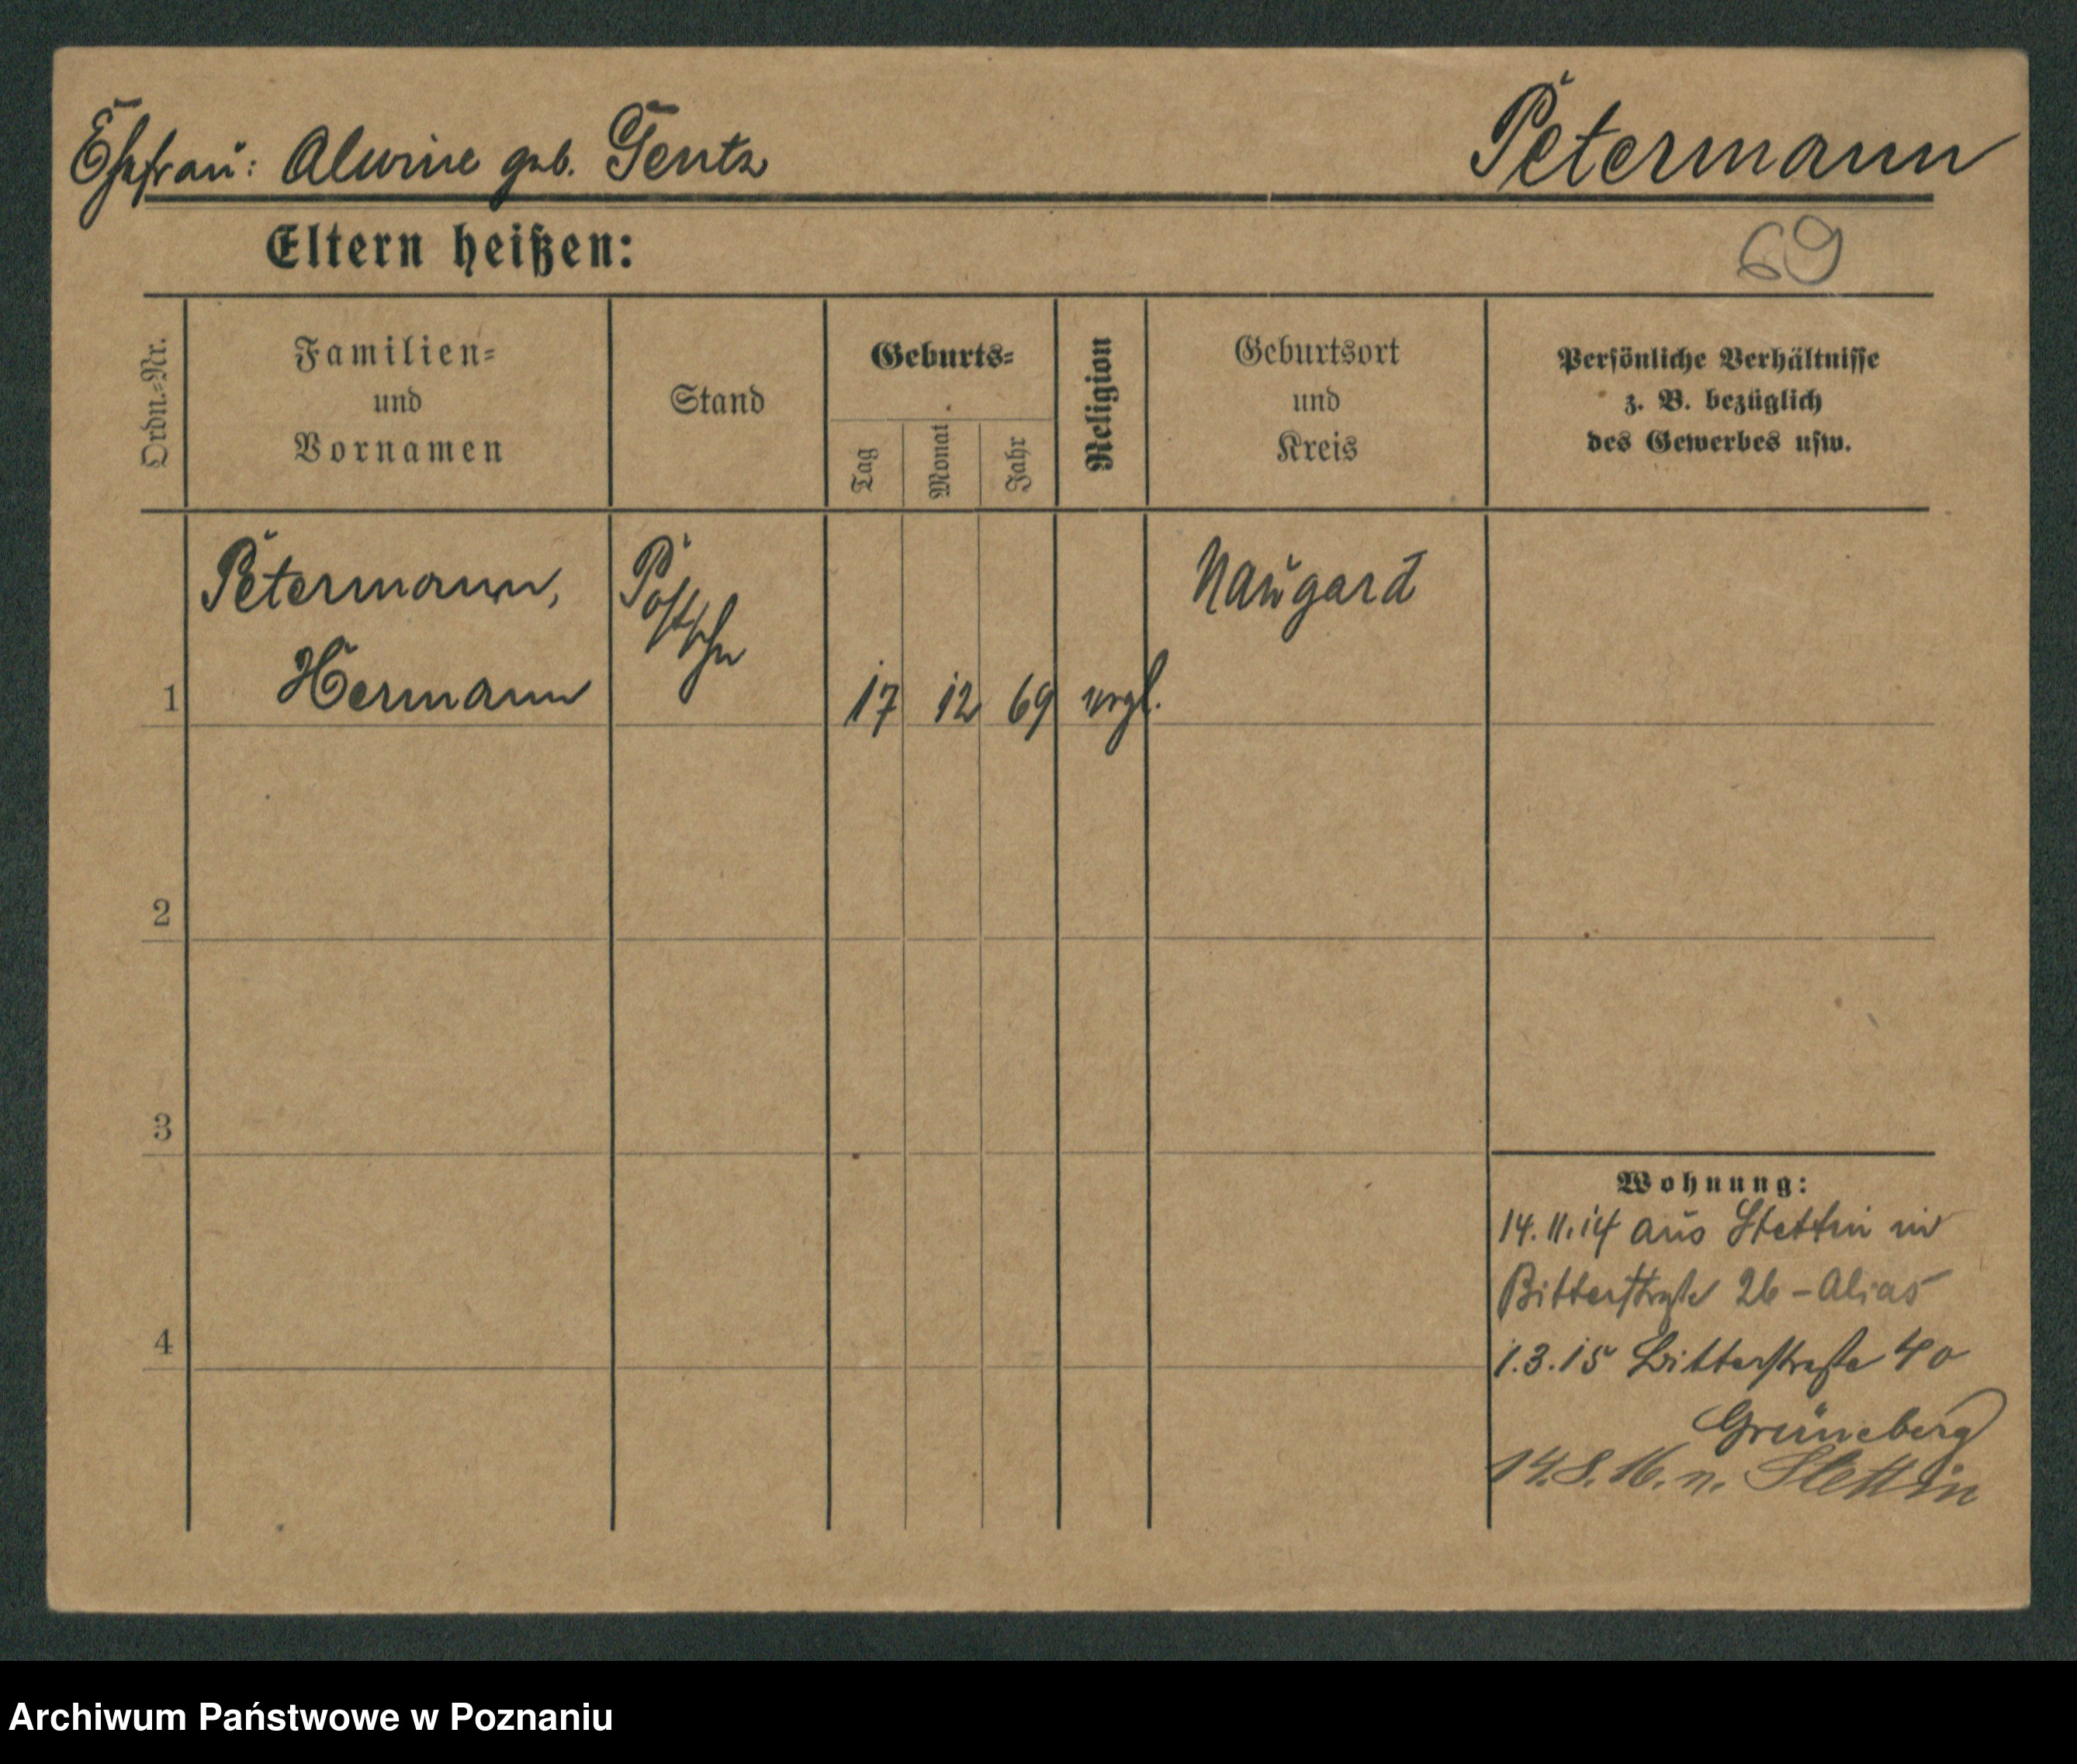 Ehefrau: Alwine geb. Gentz
Petermann
Eltern heißen:
69
Ordn.=Nr.
Familien=
und
Vornamen
Stand
Geburts=
Tag
Monat
Jahr
Religion
Geburtsort
und
Kreis
Persönliche Verhältnisse
z. B. bezüglich
des Gewerbes usw.
1
Petermann,
Hermann
17 12 69
Naugard
2
3
4
Wohnung:
14.11.14 aus Stettin in
Bitterstraße 26 – Alias
1.3.15 Bitterstraße 40
Grüneberg
14.8.16. n. Stettin
Archiwum Państwowe w Poznaniu